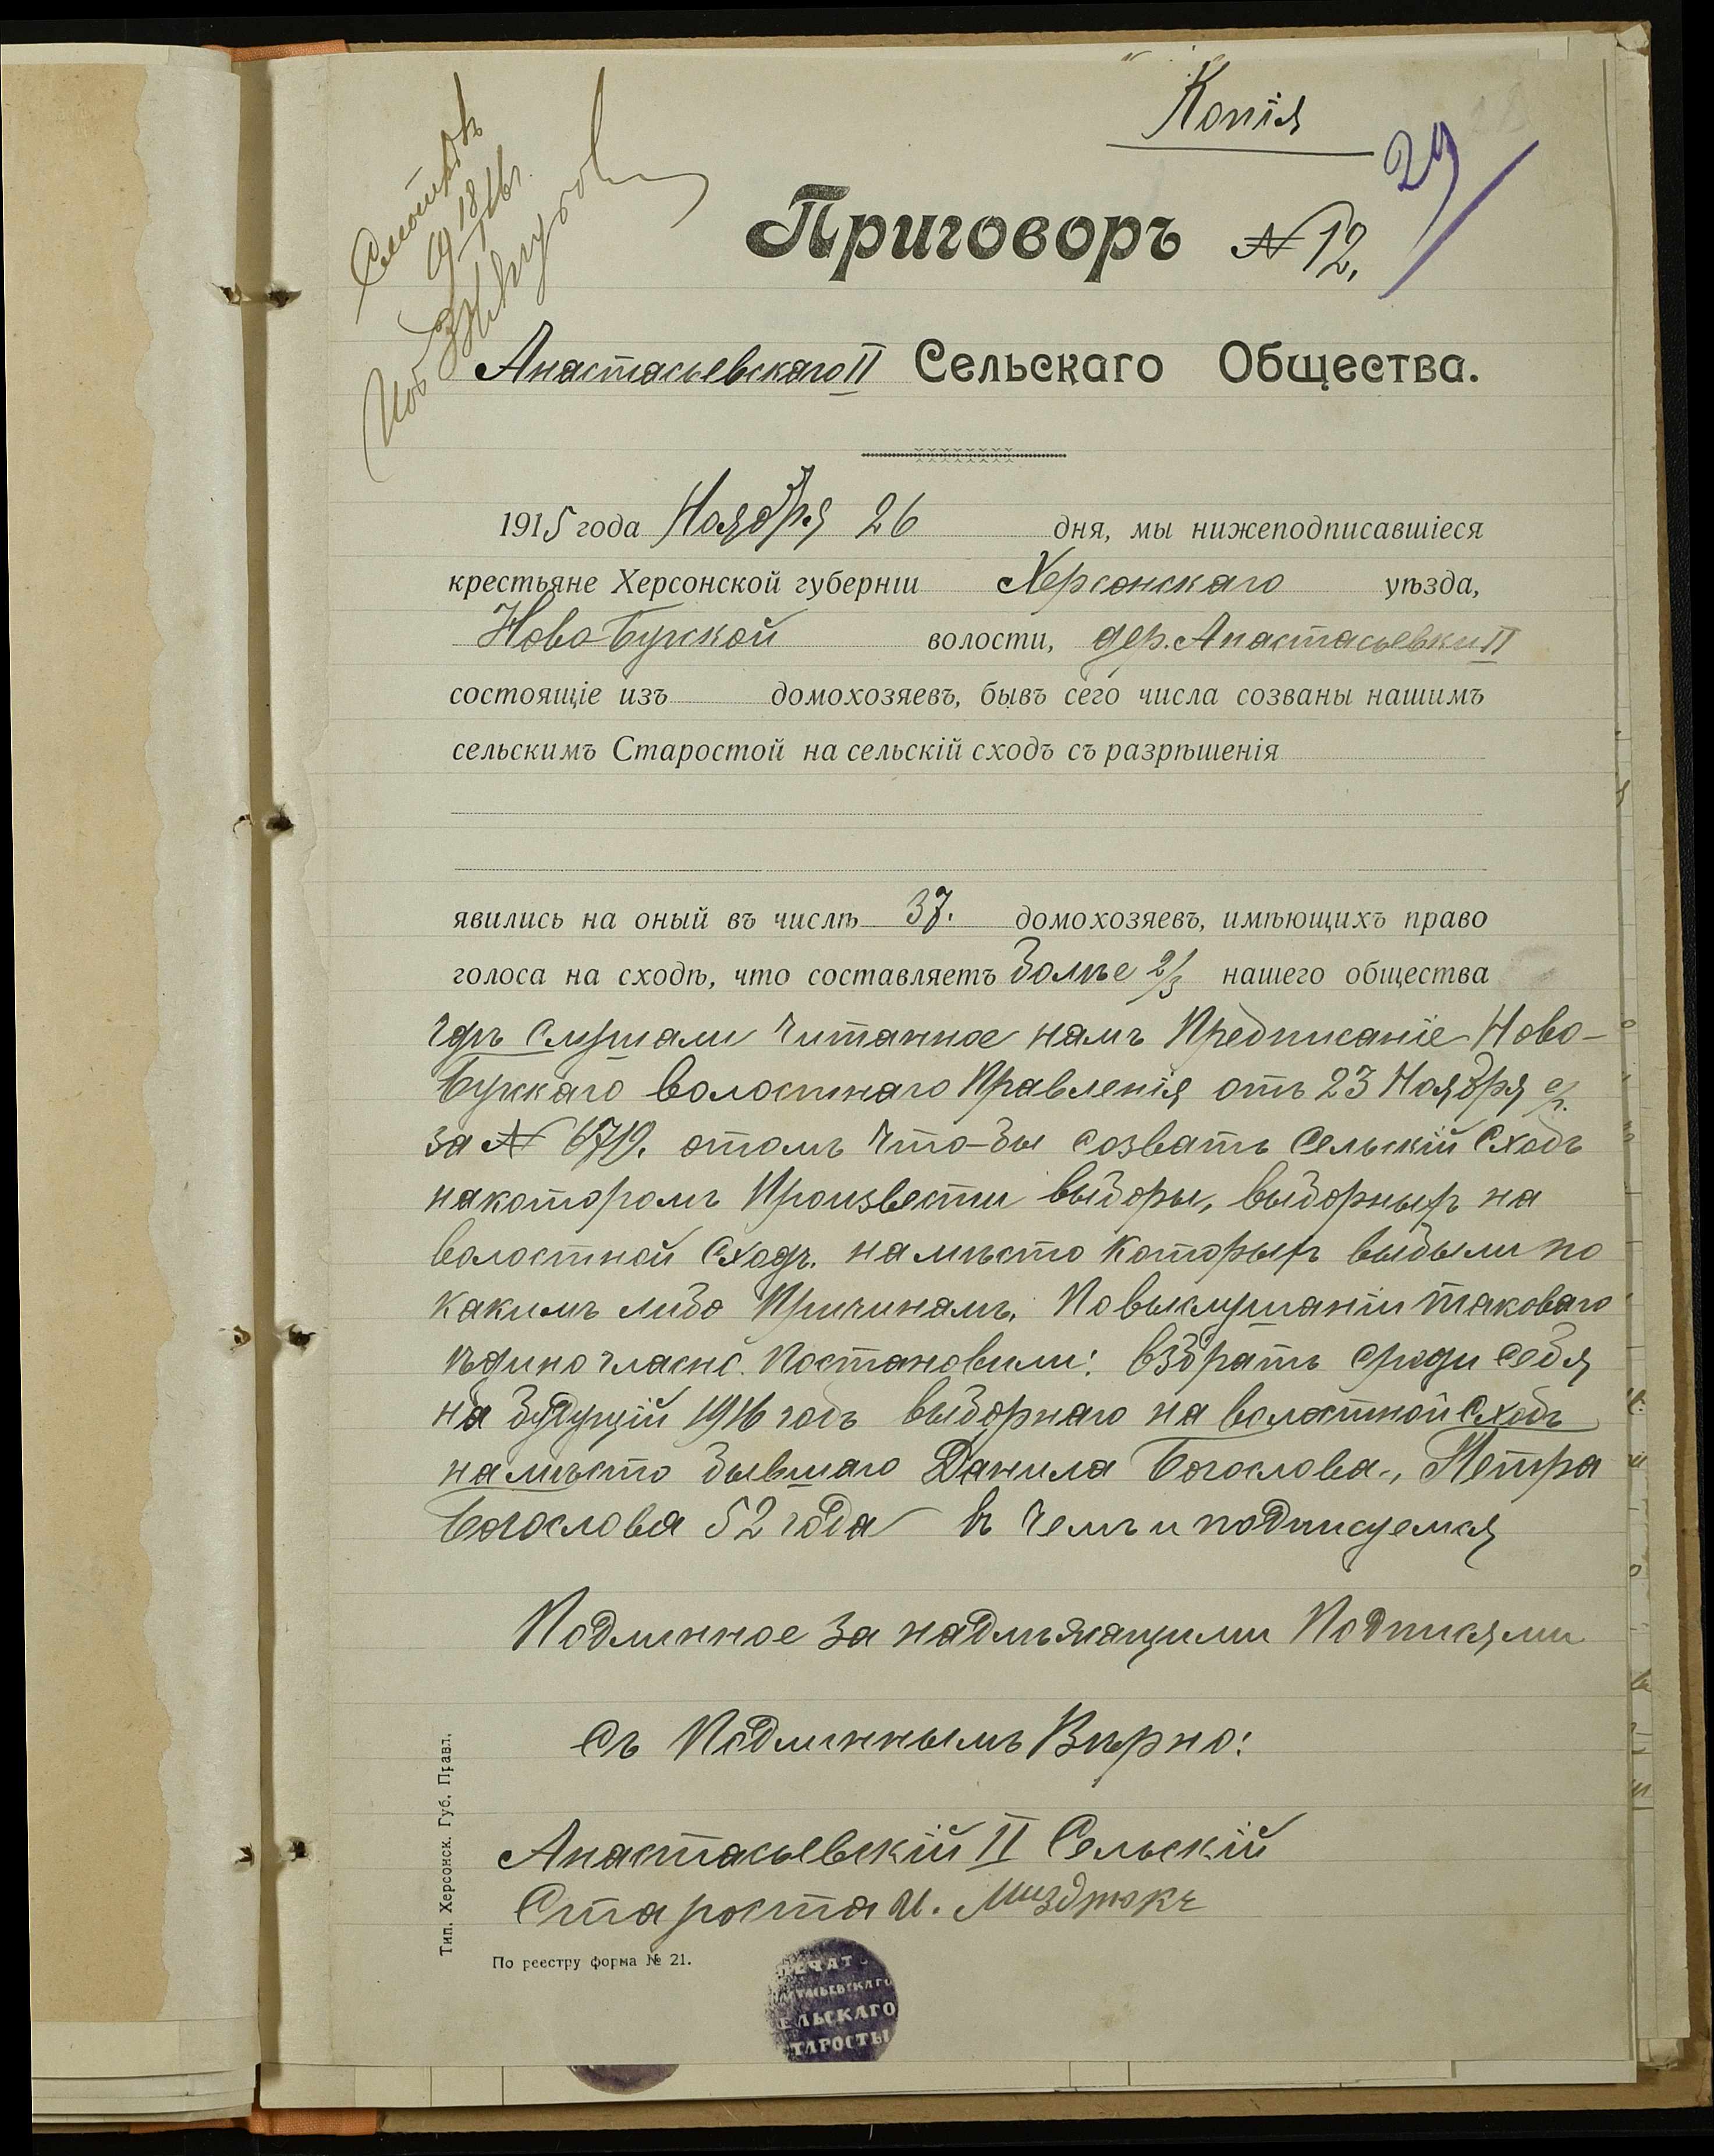 Копія
29
Приговоръ № 12.
Анастасьевскаго II Сельскаго Общества.
1915 года Ноября 26 дня, мы нижеподписавшіеся
крестьяне Херсонской губерніи Херсонскаго уѣзда,
Ново-Бугской волости, дер. Анастасьевки II
состоящіе изъ домохозяевъ, бывъ сего числа созваны нашимъ
сельскимъ Старостой на сельскій сходъ съ разрѣшенія
явились на оный въ числѣ 37. домохозяевъ, имѣющихъ право
голоса на сходѣ, что составляетъ болѣе 2/3 нашего общества
гдѣ слушали читанное намъ Предписаніе Ново-
Бугскаго волостнаго Правленія отъ 23 Ноября с/г.
за № 6719. отомъ что-бы созвать сельскій сходъ
накоторомъ Произвести выборы, выборныхъ на
волостной сходъ. намѣсто которыхъ выбыли по
какимъ либо Причинамъ. По выслушаніи таковаго
ѣдиногласно. Постановили: взбрать среди себя
на будущій 1916 годъ выборнаго на волостной сходъ
намѣсто бывшаго Данила Богослова., Петра
Богослова 52 года въ чемъ и подписуемся
Подлинное за надлѣжащими Подписями
Съ Подлиннымъ Вѣрно:
Анастасьевскій II Сельскій
Староста И. Миздрюкъ
Тип. Херсонск. Губ. Правл.
По реестру форма № 21.